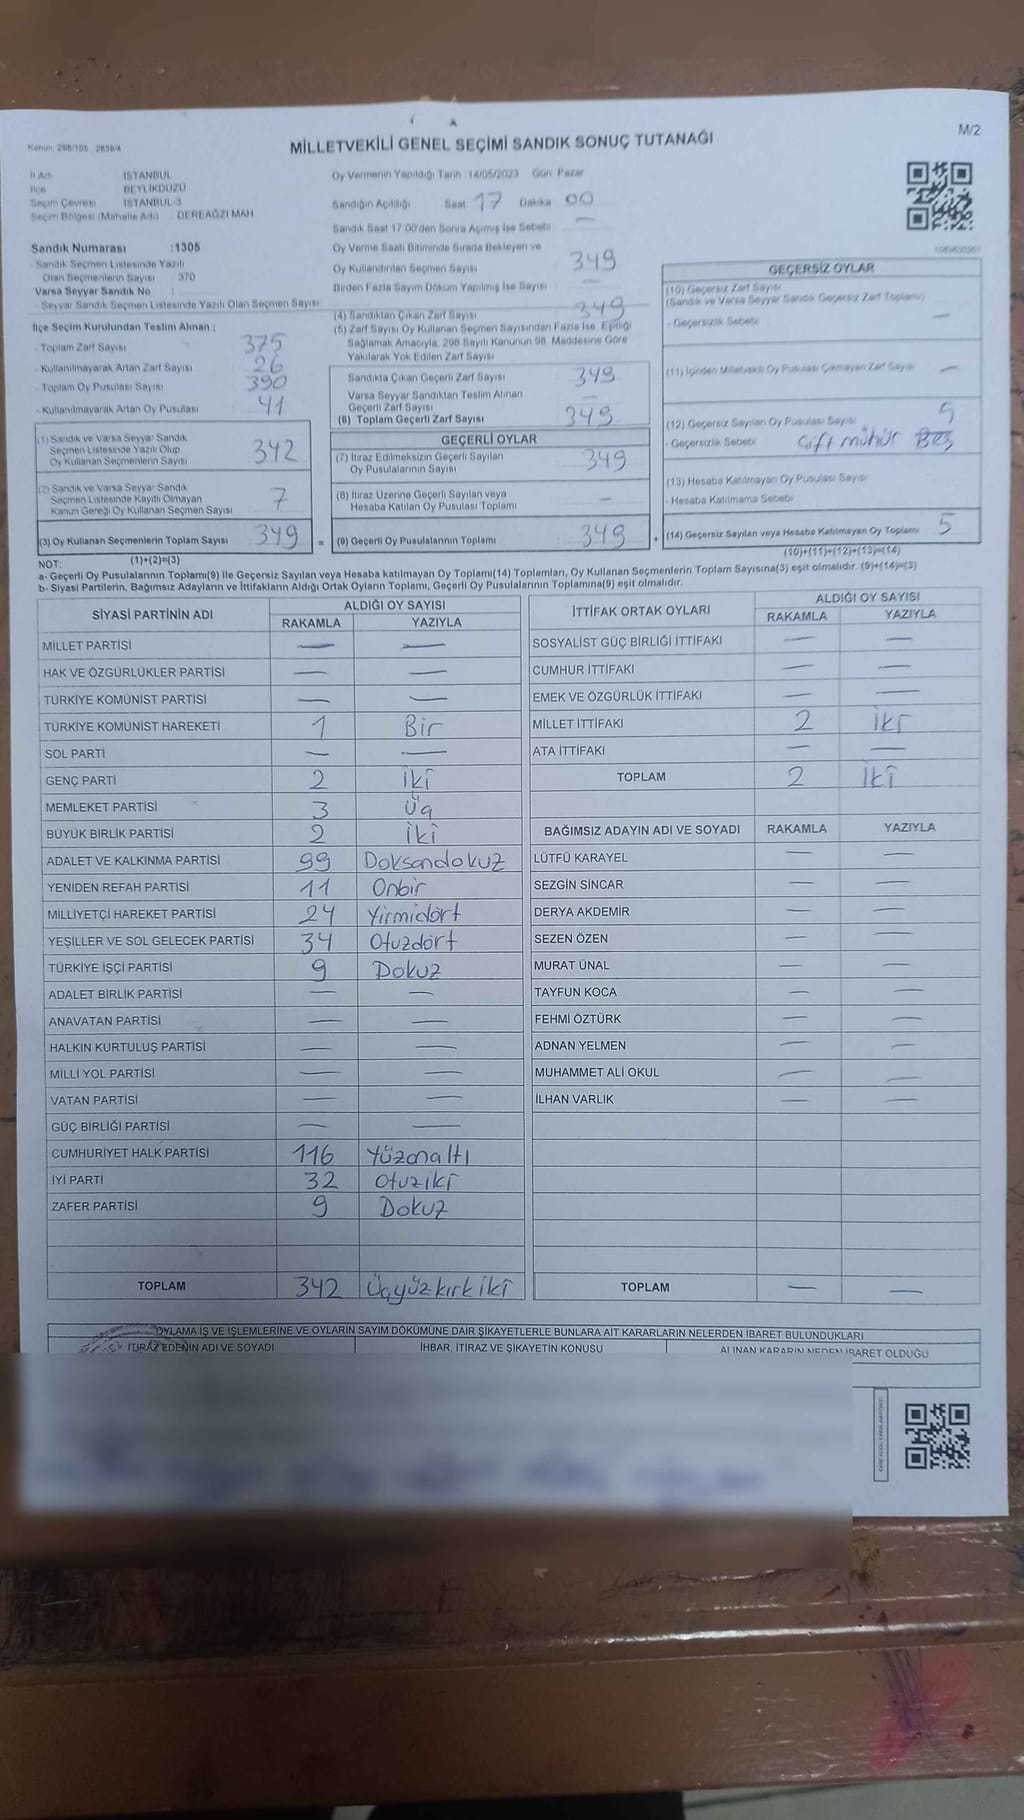 M/2
Kanun: 298/105 - 2839/4
MİLLETVEKİLİ GENEL SEÇİMİ SANDIK SONUÇ TUTANAĞI
İl Adı İSTANBUL
İlçe BEYLİKDÜZÜ
Seçim Çevresi İSTANBUL-3
Seçim Bölgesi (Mahalle Adı) : DEREAĞZI MAH
Sandık Numarası :1305
- Sandık Seçmen Listesinde Yazılı
Olan Seçmenlerin Sayısı : 370
Varsa Seyyar Sandık No :
- Seyyar Sandık Seçmen Listesinde Yazılı Olan Seçmen Sayısı
İlçe Seçim Kurulundan Teslim Alınan ;
- Toplam Zarf Sayısı 375
- Kullanılmayarak Artan Zarf Sayısı 26
- Toplam Oy Pusulası Sayısı 390
- Kullanılmayarak Artan Oy Pusulası 41
(1) Sandık ve Varsa Seyyar Sandık
Seçmen Listesinde Yazılı Olup
Oy Kullanan Seçmenlerin Sayısı 342
(2) Sandık ve Varsa Seyyar Sandık
Seçmen Listesinde Kayıtlı Olmayan
Kanun Gereği Oy Kullanan Seçmen Sayısı 7
(3) Oy Kullanan Seçmenlerin Toplam Sayısı 349 =
(1)+(2)=(3)
Oy Vermenin Yapıldığı Tarih : 14/05/2023 Gün: Pazar
Sandığın Açıldığı Saat 17 Dakika 00
Sandık Saat 17:00'den Sonra Açımış İse Sebebi : —
Oy Verme Saati Bitiminde Sırada Bekleyen ve
Oy Kullandırılan Seçmen Sayısı 349
Birden Fazla Sayım Döküm Yapılmış İse Sayısı —
(4) Sandıktan Çıkan Zarf Sayısı 349
(5) Zarf Sayısı Oy Kullanan Seçmen Sayısından Fazla İse, Eşitliği
Sağlamak Amacıyla, 298 Sayılı Kanunun 98. Maddesine Göre
Yakılarak Yok Edilen Zarf Sayısı
Sandıkta Çıkan Geçerli Zarf Sayısı 349
Varsa Seyyar Sandıktan Teslim Alınan
Geçerli Zarf Sayısı —
(6) Toplam Geçerli Zarf Sayısı 349
GEÇERLİ OYLAR
(7) İtiraz Edilmeksizin Geçerli Sayılan
Oy Pusulalarının Sayısı 349
(8) İtiraz Üzerine Geçerli Sayılan veya
Hesaba Katılan Oy Pusulası Toplamı —
(9) Geçerli Oy Pusulalarının Toplamı 349 +
GEÇERSİZ OYLAR
(10) Geçersiz Zarf Sayısı
(Sandık ve Varsa Seyyar Sandık Geçersiz Zarf Toplamı)
- Geçersizlik Sebebi : —
(11) İçinden Milletvekili Oy Pusulası Çıkmayan Zarf Sayısı —
(12) Geçersiz Sayılan Oy Pusulası Sayısı
- Geçersizlik Sebebi : Çift mühür
(13) Hesaba Katılmayan Oy Pusulası Sayısı
- Hesaba Katılmama Sebebi :
(14) Geçersiz Sayılan veya Hesaba Katılmayan Oy Toplamı 5
(10)+(11)+(12)+(13)=(14)
NOT:
a- Geçerli Oy Pusulalarının Toplamı(9) ile Geçersiz Sayılan veya Hesaba katılmayan Oy Toplamı(14) Toplamları, Oy Kullanan Seçmenlerin Toplam Sayısına(3) eşit olmalıdır. (9)+(14)=(3)
b- Siyasi Partilerin, Bağımsız Adayların ve İttifakların Aldığı Ortak Oyların Toplamı, Geçerli Oy Pusulalarının Toplamına(9) eşit olmalıdır.
SİYASİ PARTİNİN ADI ALDIĞI OY SAYISI
RAKAMLA YAZIYLA
MİLLET PARTİSİ — —
HAK VE ÖZGÜRLÜKLER PARTİSİ — —
TÜRKİYE KOMÜNİST PARTİSİ — —
TÜRKİYE KOMÜNİST HAREKETİ 1 Bir
SOL PARTİ — —
GENÇ PARTİ 2 İki
MEMLEKET PARTİSİ 3 Üç
BÜYÜK BİRLİK PARTİSİ 2 İki
ADALET VE KALKINMA PARTİSİ 99 Doksandokuz
YENİDEN REFAH PARTİSİ 11 Onbir
MİLLİYETÇİ HAREKET PARTİSİ 24 Yirmidört
YEŞİLLER VE SOL GELECEK PARTİSİ 34 Otuzdört
TÜRKİYE İŞÇİ PARTİSİ 9 Dokuz
ADALET BİRLİK PARTİSİ — —
ANAVATAN PARTİSİ — —
HALKIN KURTULUŞ PARTİSİ — —
MİLLİ YOL PARTİSİ — —
VATAN PARTİSİ — —
GÜÇ BİRLİĞİ PARTİSİ — —
CUMHURİYET HALK PARTİSİ 116 Yüzonaltı
İYİ PARTİ 32 Otuziki
ZAFER PARTİSİ 9 Dokuz
TOPLAM 342 Üçyüzkırkiki
İTTİFAK ORTAK OYLARI ALDIĞI OY SAYISI
RAKAMLA YAZIYLA
SOSYALİST GÜÇ BİRLİĞİ İTTİFAKI — —
CUMHUR İTTİFAKI — —
EMEK VE ÖZGÜRLÜK İTTİFAKI — —
MİLLET İTTİFAKI 2 İki
ATA İTTİFAKI — —
TOPLAM 2 İki
BAĞIMSIZ ADAYIN ADI VE SOYADI RAKAMLA YAZIYLA
LÜTFÜ KARAYEL — —
SEZGİN SİNCAR — —
DERYA AKDEMİR — —
SEZEN ÖZEN — —
MURAT ÜNAL — —
TAYFUN KOCA — —
FEHMİ ÖZTÜRK — —
ADNAN YELMEN — —
MUHAMMET ALİ OKUL — —
İLHAN VARLIK — —
TOPLAM — —
OYLAMA İŞ VE İŞLEMLERİNE VE OYLARIN SAYIM DÖKÜMÜNE DAİR ŞİKAYETLERLE BUNLARA AİT KARARLARIN NELERDEN İBARET BULUNDUKLARI
İTİRAZ EDENİN ADI VE SOYADI İHBAR, İTİRAZ VE ŞİKAYETİN KONUSU ALINAN KARARIN NEDEN İBARET OLDUĞU